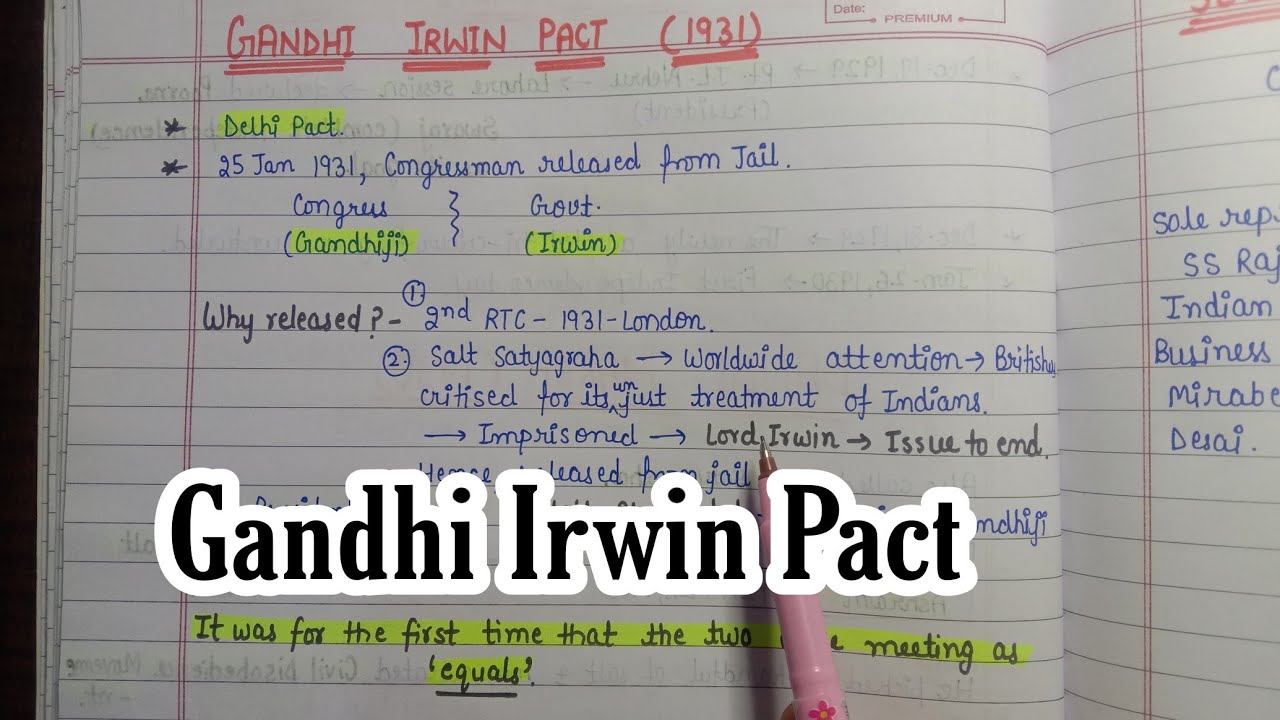 Date:
PREMIUM
GANDHI IRWIN PACT (1931)
* Delhi Pact.
* 25 Jan 1931, Congressman released from Jail.
Congress } Govt.
(Gandhiji) (Irwin)
Why released? - ① 2nd RTC - 1931 - London.
② Salt Satyagraha → Worldwide attention → Britishers
critised for its unjust treatment of Indians.
→ Imprisoned → Lord Irwin → Issue to end.
Hence released from jail
Gandhi Irwin Pact
It was for the first time that the two meeting as
'equals'.
Sole rep
SS Raj
Indian
Business
Mirabe
Desai.